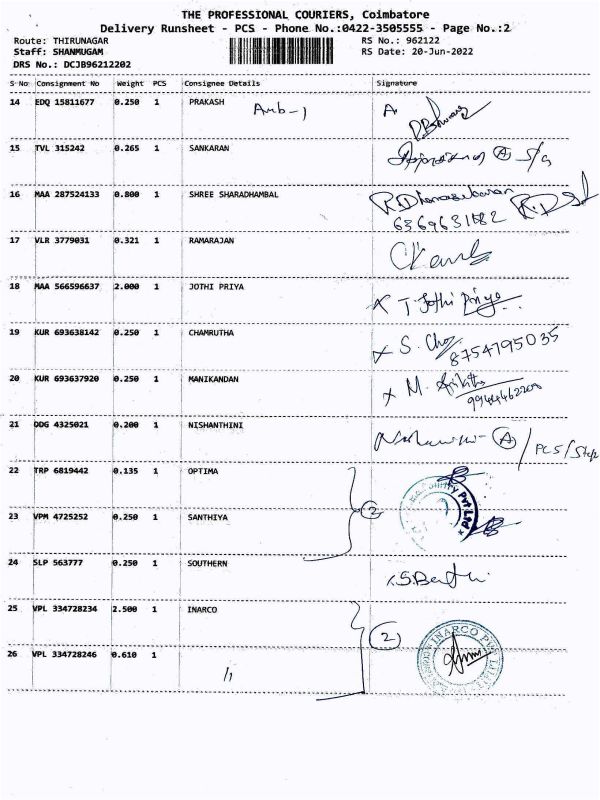 THE PROFESSIONAL COURIERS, Coimbatore
Delivery Runsheet - PCS - Phone No.:0422-3505555 - Page No.:2
Route: THIRUNAGAR RS No.: 962122
Staff: SHANMUGAM RS Date: 20-Jun-2022
DRS No.: DCJB96212202
S No Consignment No Weight PCS Consignee Details Signature
14 EDQ 15811677 0.250 1 PRAKASH A
15 TVL 315242 0.265 1 SANKARAN
16 MAA 287524133 0.800 1 SHREE SHARADHAMBAL
17 VLR 3779031 0.321 1 RAMARAJAN
18 MAA 566596637 2.000 1 JOTHI PRIYA x T Jothi Priya
19 KUR 693638142 0.250 1 CHAMRUTHA x S.
8754795035
20 KUR 693637920 0.250 1 MANIKANDAN x M.
21 ODG 4325021 0.200 1 NISHANTHINI A
22 TRP 6819442 0.135 1 OPTIMA
2
Pvt Ltd
23 VPM 4725252 0.250 1 SANTHIYA
24 SLP 563777 0.250 1 SOUTHERN
25 VPL 334728234 2.500 1 INARCO
2
INARCO
26 VPL 334728246 0.610 1